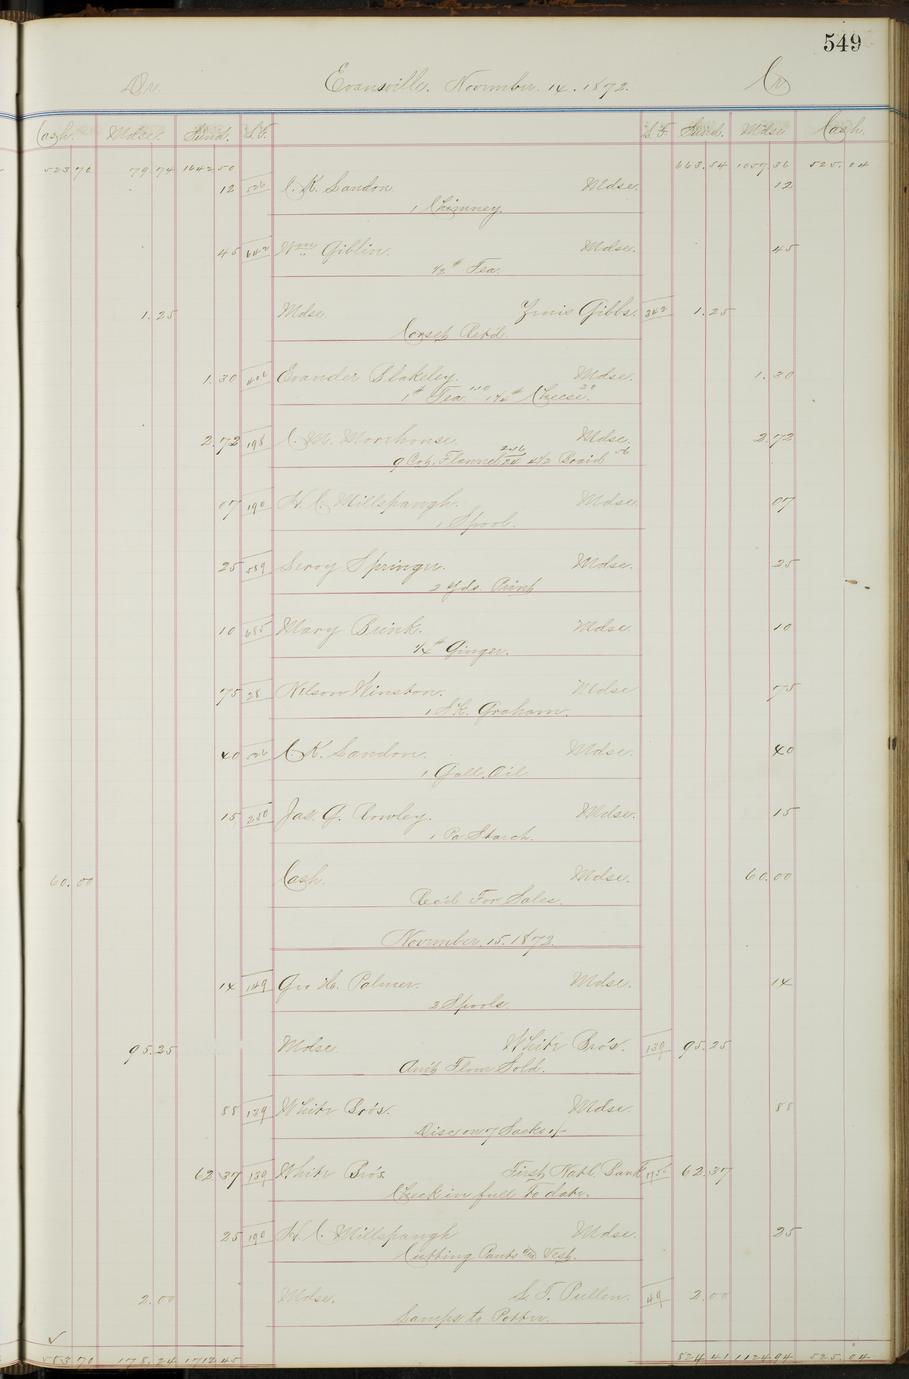 549
Dr. Evansville. November. 14. 1872. Cr
Cash. Mdse. Sund. S.F. S.F. Sund. Mdse. Cash.
523.70 79.74 1642.50 663.54 1057.36 525.04
12 526 C. K. Landon. Mdse. 12
1 Chimney.
45 Wm Giblin. Mdse. 45
1/2 # Tea.
1.25 Mdse. Gibbs. 342 1.25
Corset Ret'd.
1.30 Evander Blakeley. Mdse. 1.30
1 # Tea. 1.10 Cheese. 20
2.72 198 C. M. Morehouse. Mdse. 2.72
9 Flannel 4 1/2 Braid
07 190 H. C. Millspaugh. Mdse. 07
1 Spool.
25 589 Leroy Springer. Mdse. 25
2 Yds. Print
10 685 Mary Brink. Mdse. 10
1/4 # Ginger.
75 28 Nelson Winston. Mdse 75
1 Sk. Graham.
40 526 C. K. Landon. Mdse. 40
1 Gall. Oil.
15 250 Jas. G. Crowley. Mdse. 15
1 Pa Starch.
60.00 Cash. Mdse. 60.00
Rec'd For Sales.
November. 15. 1872.
14 149 Geo H. Palmer. Mdse. 14
2 Spools.
95.25 Mdse. White Bro's. 139 95.25
Am't Flour Sold.
55 139 White Bro's. Mdse. 55
Disc on 7 Sacks
62.37 139 White Bro's First Natl. Bank 62.37
Check in full To date.
25 190 H. C. Millspaugh Mdse. 25
Cutting Pants and Vest.
2.00 Mdse. L. T. Pullen. 49 2.00
Lamps to Potter.
583.70 178.24 1712.45 824.41 1124.94 525.04